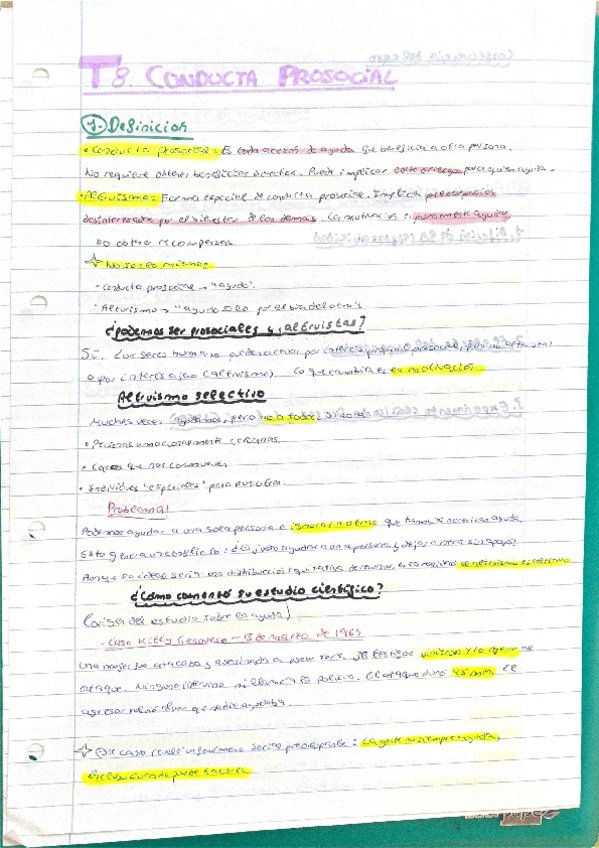 T8. CONDUCTA PROSOCIAL
1.- Definición
• Conducta prosocial: Es toda acción de ayuda que beneficia a otra persona.
No requiere obtener beneficios directos. Puede implicar coste o riesgo para quien ayuda.
• Altruismo: Forma especial de conducta prosocial. Implica preocupación
desinteresada por el bienestar de los demás. La motivación es puramente ayudar
no obtener recompensa
No son lo mismo:
- Conducta prosocial → "ayudo".
- Altruismo → "ayudo solo por el bien del otro".
¿podemos ser prosociales y altruistas?
Sí. Los seres humanos pueden actuar por interés propio
o por interés ajeno (altruismo). Lo que cambia es su motivación.
Altruismo selectivo
Muchas veces ayudamos, pero no a todos, sino a:
• Personas emocionalmente cercanas.
• Casos que nos conmueven
• Individuos "especiales" para nosotros.
Problema!
Podemos ayudar a una sola persona e ignorar a otras que también necesitan ayuda.
Esto genera un conflicto: ¿Es justo ayudar a una persona y dejar a otra sin apoyo?
Aunque lo ideal sería una distribución equitativa de recursos, la realidad
¿Cómo comenzó su estudio científico?
(origen del estudio sobre la ayuda)
- Caso Kitty Genovese ~ 13 de marzo de 1964
Una mujer fue atacada y asesinada en Nueva York. 38 testigos vinieron y/o oyeron el
ataque. Ninguno intervino ni llamó a la policía. El ataque duró 45 min. El
agresor volvió al ver que nadie ayudaba.
Este caso reveló un fenómeno social preocupante: La gente no siempre ayuda,